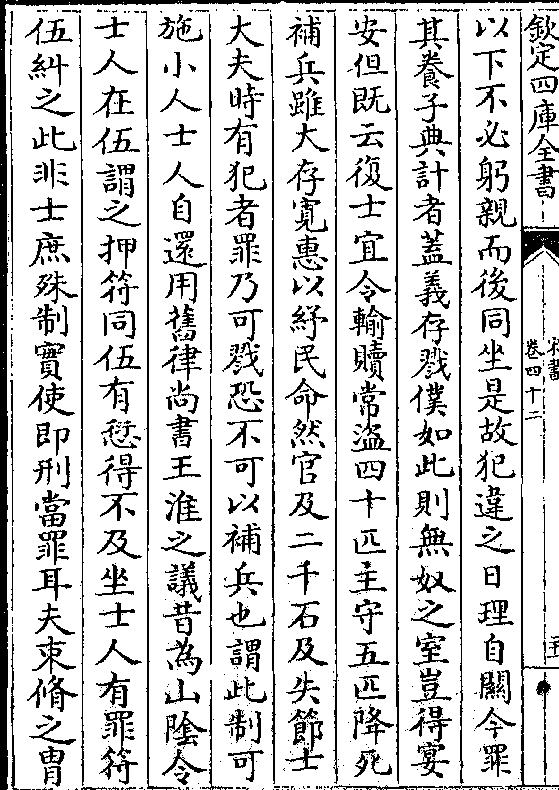 欽定四庫全書
卷四十二
以下不必躬親而後同坐是故犯違之日理自關今罪
其養子典計者蓋義存戮僕如此則無奴之室豈得宴
安但既云復士宜令輸贖常盜四十匹主守五匹降死
補兵雖大存寛惠以紓民命然官及二千石及失節士
大夫時有犯者罪乃可戮恐不可以補兵也謂此制可
施小人士人自還用舊律尚書王淮之議昔為山隂令
士人在伍謂之押符同伍有愆得不及坐士人有罪符
伍糾之此非士庶殊制實使即刑當罪耳夫束脩之胄